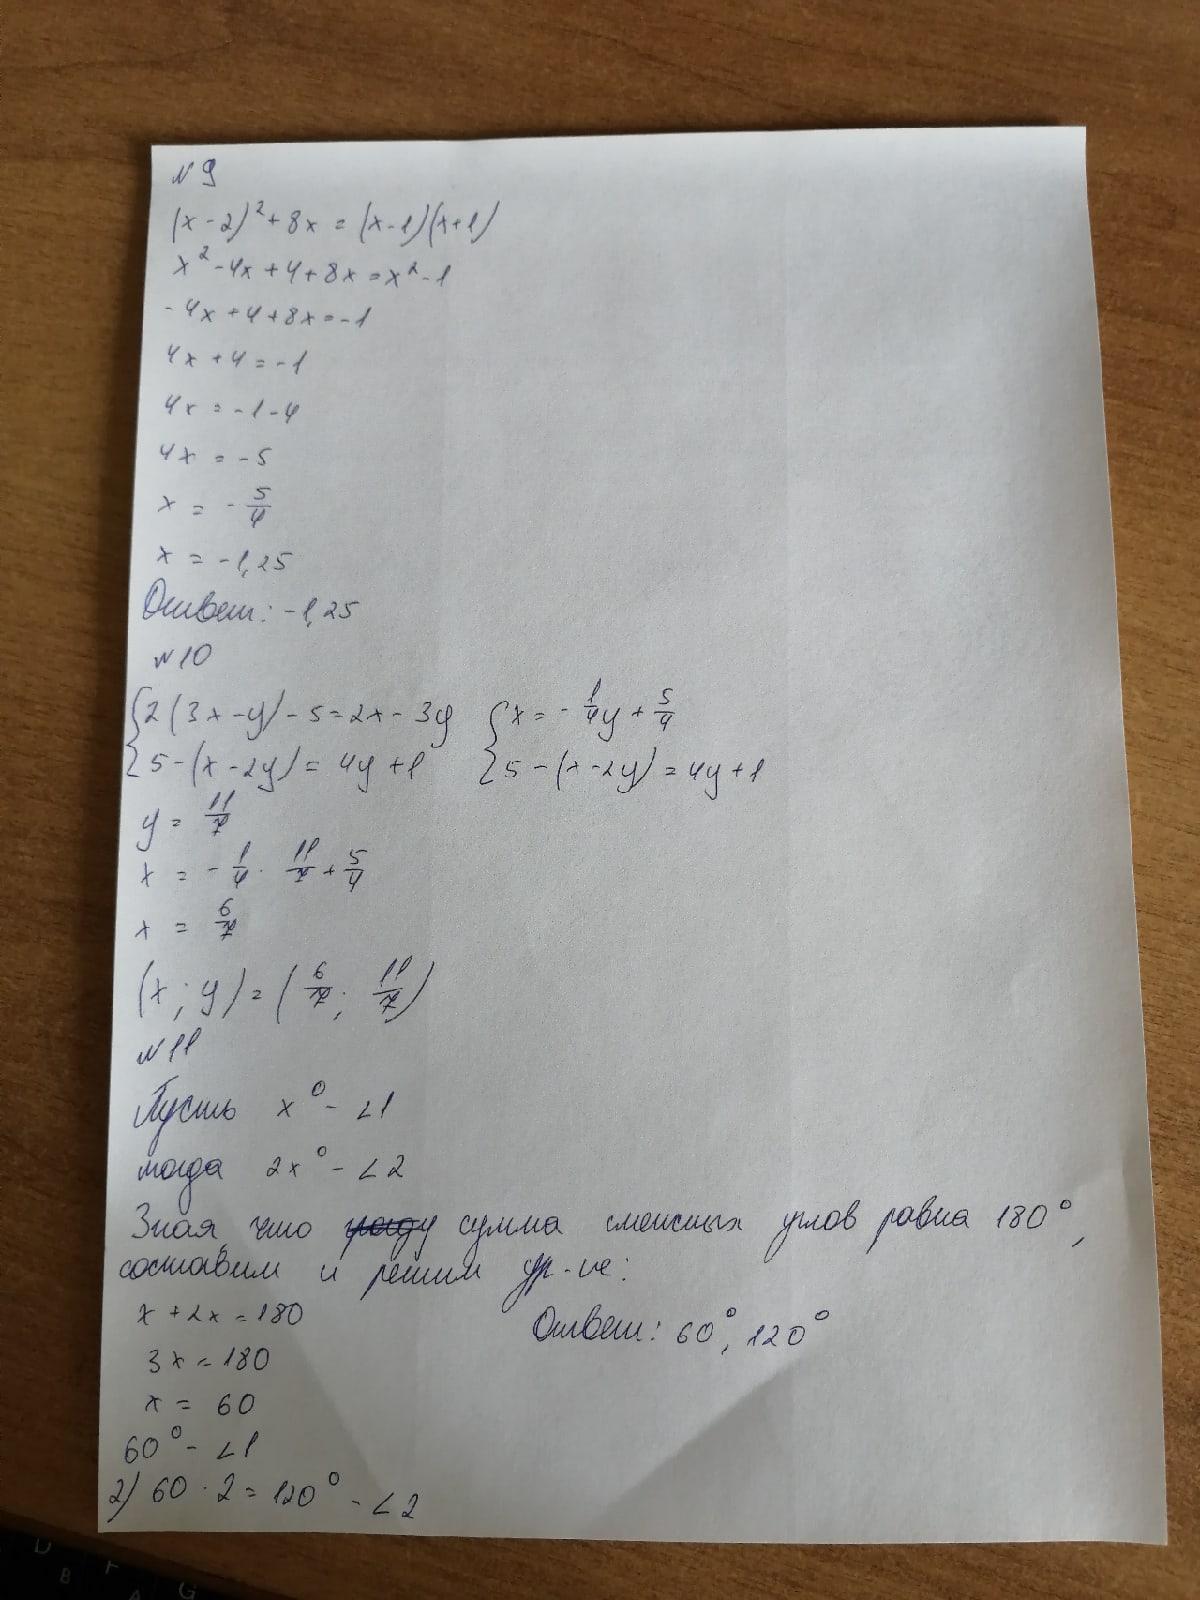 № 9
(x-2)²+8x=(x-1)(x+1)
x²-4x+4+8x=x²-1
-4x+4+8x=-1
4x+4=-1
4x=-1-4
4x=-5
x=-5/4
x=-1,25
Ответ: -1,25
№ 10
{2(3x-y)-5=2x-3y {x=-1/4y+5/4
5-(x-2y)=4y+1 5-(x-2y)=4y+1
y=11/7
x=-1/4·11/7+5/4
x=6/7
(x;y)=(6/7;11/7)
№ 11
Пусть x°-∠1
тогда 2x°-∠2
Зная что сумма смежных углов равна 180°,
составим и решим ур-ие:
x+2x=180
3x=180
x=60
60°-∠1
2) 60·2=120°-∠2
Ответ: 60°, 120°
D F
B A G